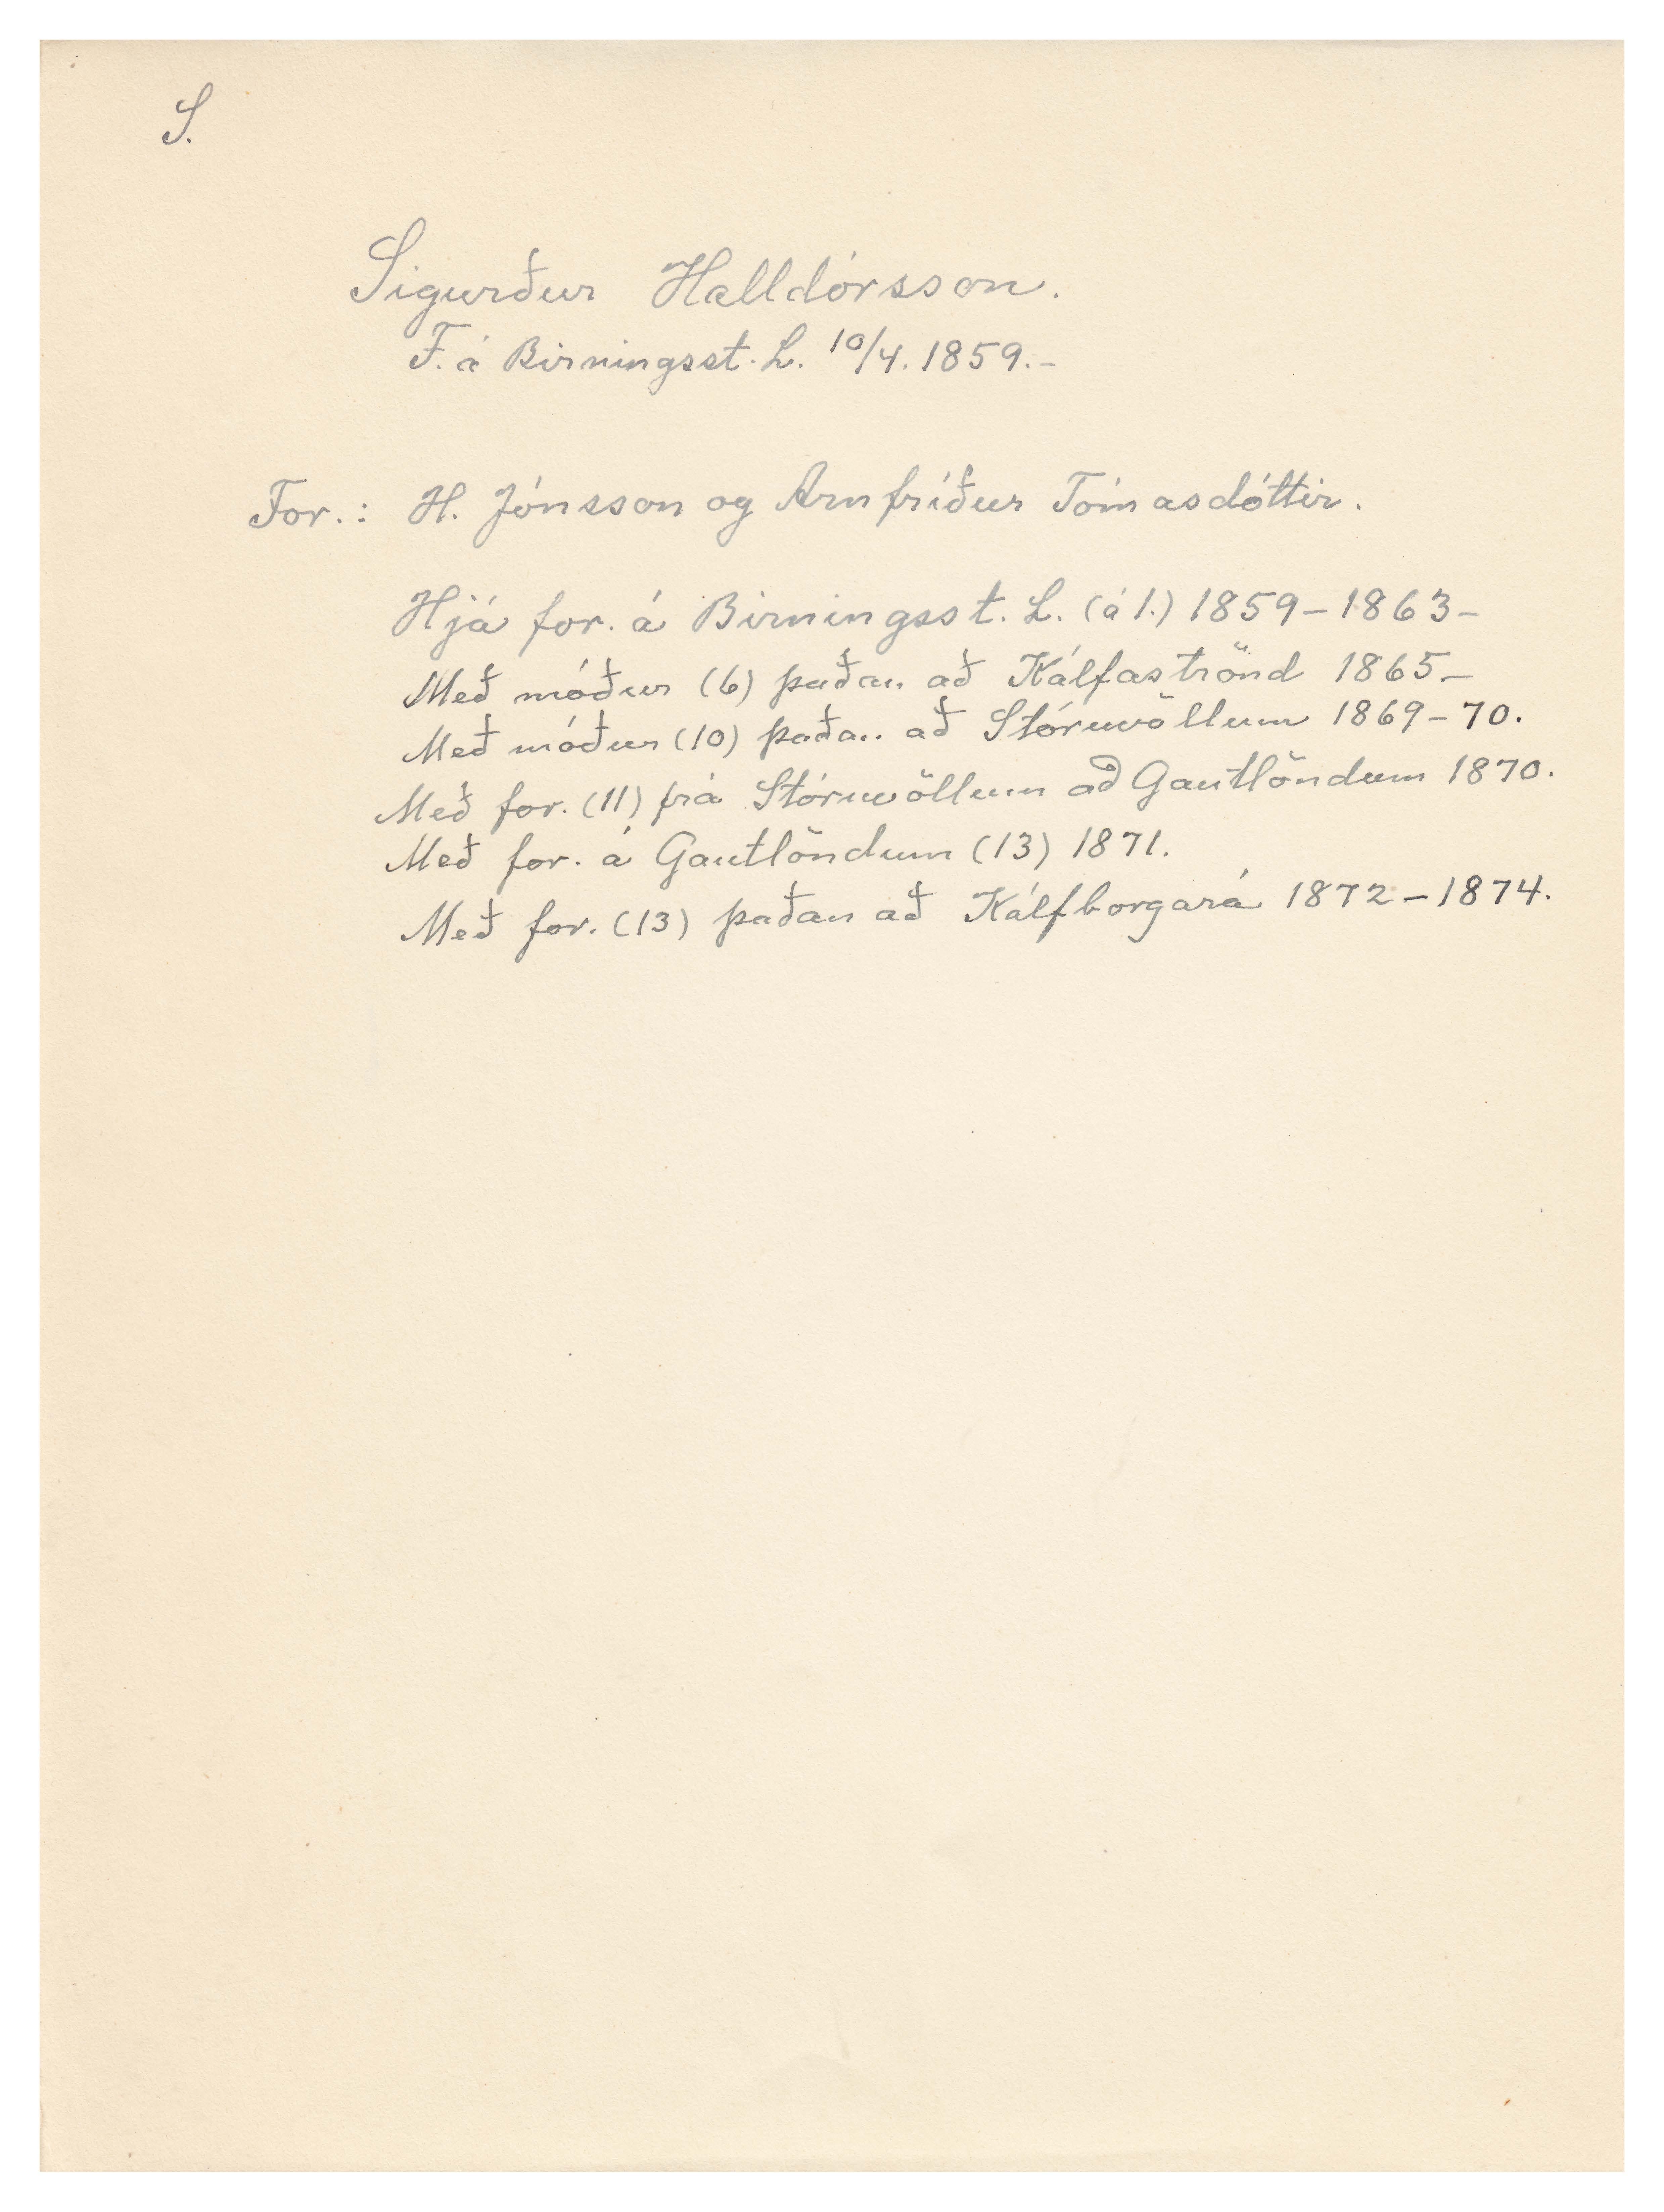 S.
Sigurður Halldórsson.
F. á Birningsst. L. 10/4. 1859.-
For.: H. Jónsson og Arnfríður Tómasdóttir.
Hjá for. á Birningsst. L. (á 1.) 1859-1863-
Með móður (6) þaðan að Kálfaströnd 1865-
Með móður (10) þaðan að Stóruvöllum 1869-70.
Með for. (11) frá Stóruvöllum að Gautlöndum 1870.
Með for. á Gautlöndum (13) 1871.
Með for. (13) þaðan að Kálfborgará 1872-1874.